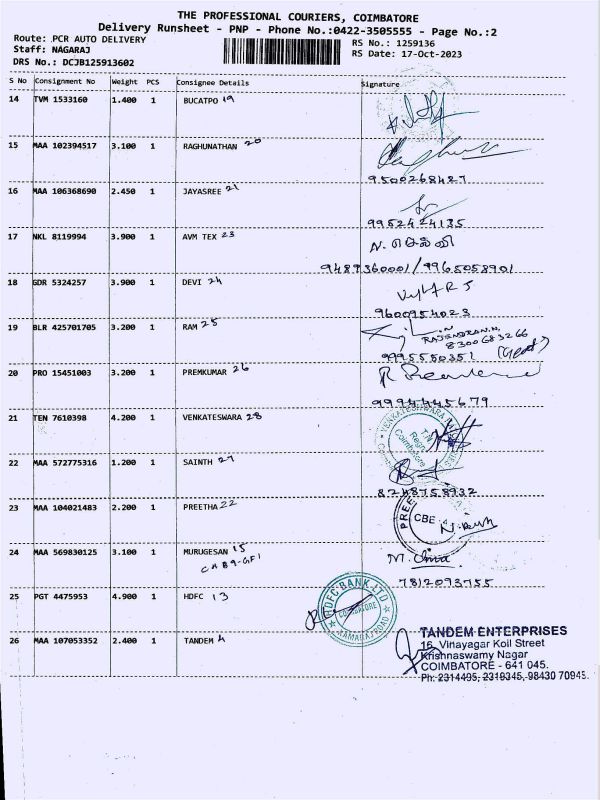 THE PROFESSIONAL COURIERS, COIMBATORE
Delivery Runsheet - PNP - Phone No.:0422-3505555 - Page No.:2
Route: .PCR AUTO DELIVERY
RS No.: 1259136
Staff: NAGARAJ
RS Date: 17-Oct-2023
DRS No.: DCJB125913602
S No Consignment No Weight PCS Consignee Details Signature
14 TVM 1533160 1.400 1 BUCATPO 19
15 MAA 102394517 3.100 1 RAGHUNATHAN 20
9500268427
16 MAA 106368690 2.450 1 JAYASREE 21
9952424135
17 NKL 8119994 3.900 1 AVM TEX 23
N. செல்வி
9487360001/9965058901
18 GDR 5324257 3.900 1 DEVI 24
9600954023
19 BLR 425701705 3.200 1 RAM 25
RAJENDRAN.N.
8300683266
9995550351
20 PRO 15451003 3.200 1 PREMKUMAR 26
9994445679
21 TEN 7610398 4.200 1 VENKATESWARA 28
22 MAA 572775316 1.200 1 SAINTH 27
8248758932
23 MAA 104021483 2.200 1 PREETHA 22
CBE
24 MAA 569830125 3.100 1 MURUGESAN 15
M. Uma
7812093755
25 PGT 4475953 4.900 1 HDFC 13
HDFC BANK LTD
COIMBATORE
RAMARAJ ROAD
26 MAA 107053352 2.400 1 TANDEM 4
TANDEM ENTERPRISES
16, Vinayagar Koil Street
Krishnaswamy Nagar
COIMBATORE - 641 045.
Ph: 2314495, 2319345, 98430 70945.